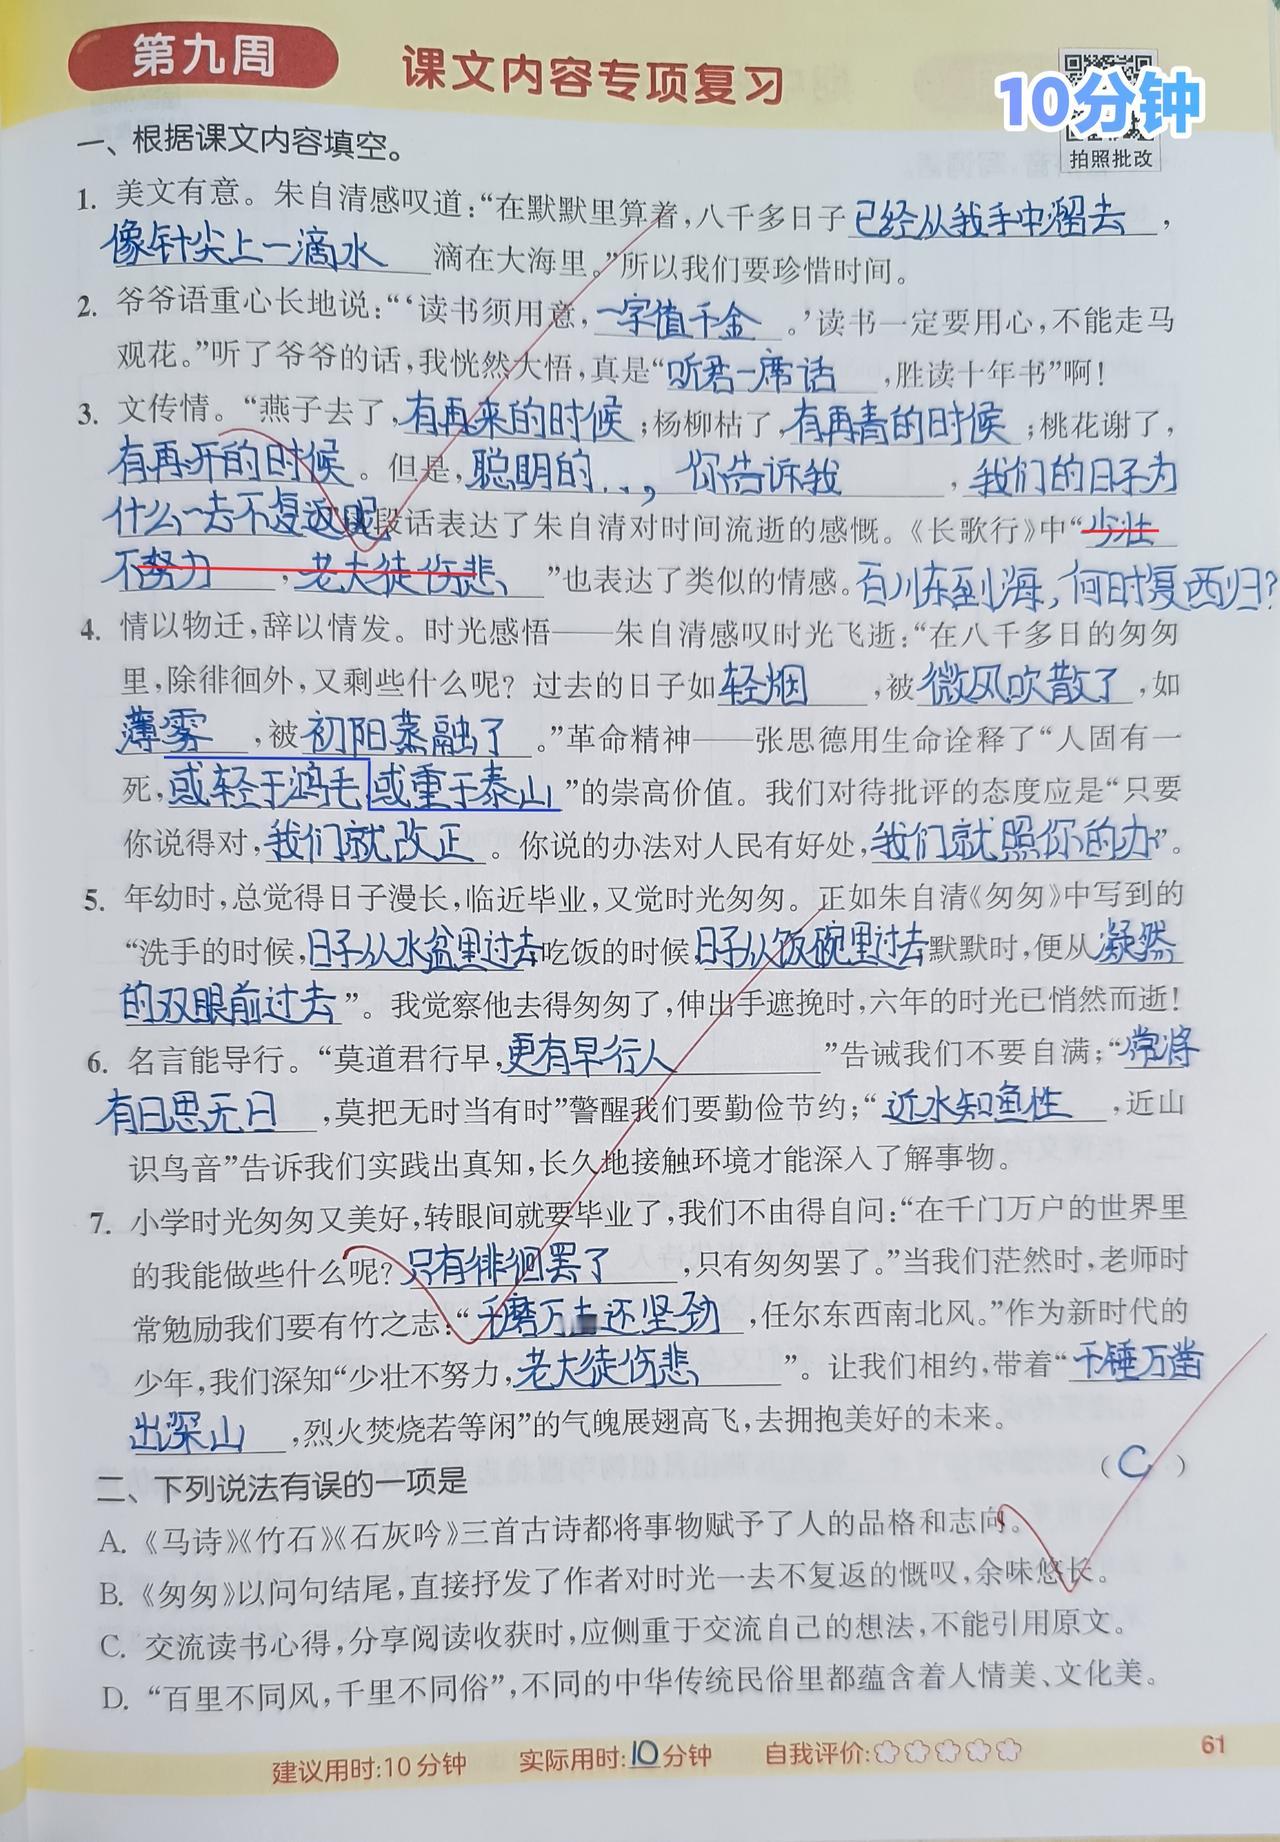 第九周 课文内容专项复习 10分钟
拍照批改
一、根据课文内容填空。
1. 美文有意。朱自清感叹道:“在默默里算着,八千多日子已经从我手中溜去,
像针尖上一滴水滴在大海里。”所以我们要珍惜时间。
2. 爷爷语重心长地说:“‘读书须用意,一字值千金。’读书一定要用心,不能走马
观花。”听了爷爷的话,我恍然大悟,真是“听君一席话,胜读十年书”啊!
3. 文传情。“燕子去了,有再来的时候;杨柳枯了,有再青的时候;桃花谢了,
有再开的时候。但是,聪明的...,你告诉我,我们的日子为
什么一去不复返呢段话表达了朱自清对时间流逝的感慨。《长歌行》中“少壮
不努力,老大徒伤悲”也表达了类似的情感。百川东到海,何时复西归?
4. 情以物迁,辞以情发。时光感悟——朱自清感叹时光飞逝:“在八千多日的匆匆
里,除徘徊外,又剩些什么呢?过去的日子如轻烟,被微风吹散了,如
薄雾,被初阳蒸融了。”革命精神——张思德用生命诠释了“人固有一
死,或轻于鸿毛或重于泰山”的崇高价值。我们对待批评的态度应是“只要
你说得对,我们就改正。你说的办法对人民有好处,我们就照你的办”。
5. 年幼时,总觉得日子漫长,临近毕业,又觉时光匆匆。正如朱自清《匆匆》中写到的
“洗手的时候,日子从水盆里过去吃饭的时候,日子从饭碗里过去默默时,便从凝然
的双眼前过去”。我觉察他去得匆匆了,伸出手遮挽时,六年的时光已悄然而逝!
6. 名言能导行。“莫道君行早,更有早行人”告诫我们不要自满;“常将
有日思无日,莫把无时当有时”警醒我们要勤俭节约;“近水知鱼性,近山
识鸟音”告诉我们实践出真知,长久地接触环境才能深入了解事物。
7. 小学时光匆匆又美好,转眼间就要毕业了,我们不由得自问:“在千门万户的世界里
的我能做些什么呢?只有徘徊罢了,只有匆匆罢了。”当我们茫然时,老师时
常勉励我们要有竹之志:“千磨万击还坚劲,任尔东西南北风。”作为新时代的
少年,我们深知“少壮不努力,老大徒伤悲”。让我们相约,带着“千锤万凿
出深山,烈火焚烧若等闲”的气魄展翅高飞,去拥抱美好的未来。
二、下列说法有误的一项是 (C)
A.《马诗》《竹石》《石灰吟》三首古诗都将事物赋予了人的品格和志向。
B.《匆匆》以问句结尾,直接抒发了作者对时光一去不复返的慨叹,余味悠长。
C. 交流读书心得,分享阅读收获时,应侧重于交流自己的想法,不能引用原文。
D. “百里不同风,千里不同俗”,不同的中华传统民俗里都蕴含着人情美、文化美。
建议用时:10分钟 实际用时:10分钟 自我评价: 61